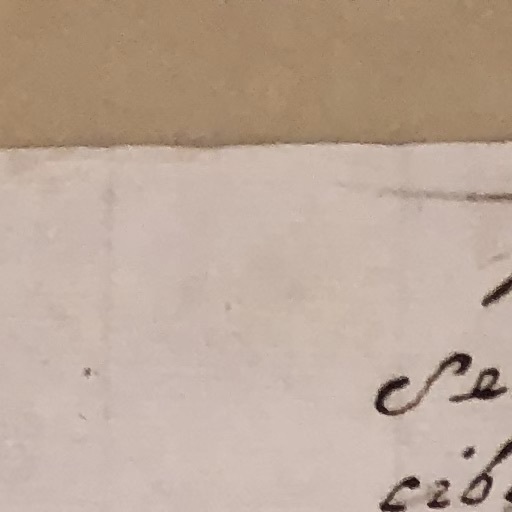 Se
cib